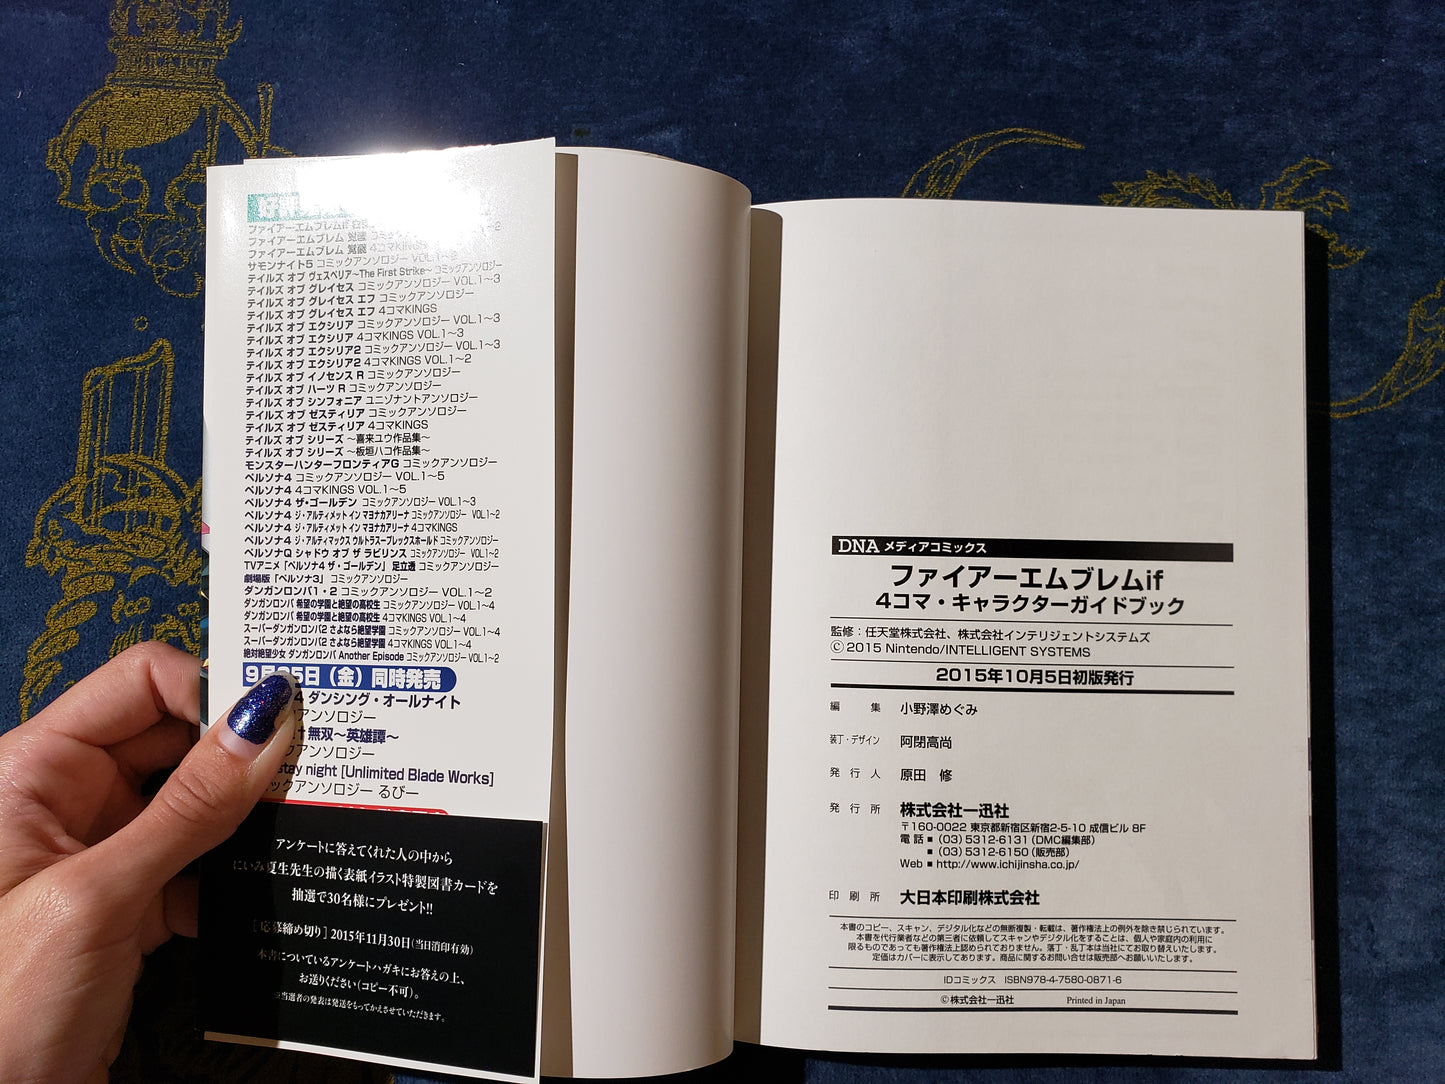 好評
ファイアーエムブレムif
ファイアーエムブレム 覚醒
ファイアーエムブレム 覚醒 4コマKINGS
サモンナイト5 コミックアンソロジー VOL.1～2
テイルズ オブ ヴェスペリア～The First Strike～ コミックアンソロジー
テイルズ オブ グレイセス コミックアンソロジー VOL.1～3
テイルズ オブ グレイセス エフ コミックアンソロジー
テイルズ オブ グレイセス エフ 4コマKINGS
テイルズ オブ エクシリア コミックアンソロジー VOL.1～3
テイルズ オブ エクシリア 4コマKINGS VOL.1～3
テイルズ オブ エクシリア2 コミックアンソロジー VOL.1～3
テイルズ オブ エクシリア2 4コマKINGS VOL.1～2
テイルズ オブ イノセンス R コミックアンソロジー
テイルズ オブ ハーツ R コミックアンソロジー
テイルズ オブ シンフォニア ユニゾナントアンソロジー
テイルズ オブ ゼスティリア コミックアンソロジー
テイルズ オブ ゼスティリア 4コマKINGS
テイルズ オブ シリーズ ～喜来ユウ作品集～
テイルズ オブ シリーズ ～板垣ハコ作品集～
モンスターハンターフロンティアG コミックアンソロジー
ペルソナ4 コミックアンソロジー VOL.1～5
ペルソナ4 4コマKINGS VOL.1～5
ペルソナ4 ザ・ゴールデン コミックアンソロジー VOL.1～3
ペルソナ4 ジ・アルティメット イン マヨナカアリーナ コミックアンソロジー VOL.1～2
ペルソナ4 ジ・アルティメット イン マヨナカアリーナ 4コマKINGS
ペルソナ4 ジ・アルティマックス ウルトラスープレックスホールド コミックアンソロジー
ペルソナQ シャドウ オブ ザ ラビリンス コミックアンソロジー VOL.1～2
TVアニメ「ペルソナ4 ザ・ゴールデン」 足立透 コミックアンソロジー
劇場版「ペルソナ3」 コミックアンソロジー
ダンガンロンパ1・2 コミックアンソロジー VOL.1～2
ダンガンロンパ 希望の学園と絶望の高校生 コミックアンソロジー VOL.1～4
ダンガンロンパ 希望の学園と絶望の高校生 4コマKINGS VOL.1～4
スーパーダンガンロンパ2 さよなら絶望学園 コミックアンソロジー VOL.1～4
スーパーダンガンロンパ2 さよなら絶望学園 4コマKINGS VOL.1～4
絶対絶望少女 ダンガンロンパ Another Episode コミックアンソロジー VOL.1～2
9月25日（金）同時発売
4 ダンシング・オールナイト
アンソロジー
無双～英雄譚～
クアンソロジー
stay night [Unlimited Blade Works]
ックアンソロジー るびー
アンケートに答えてくれた人の中から
にいみ夏生先生の描く表紙イラスト特製図書カードを
抽選で30名様にプレゼント!!
[応募締め切り] 2015年11月30日(当日消印有効)
本書についているアンケートハガキにお答えの上、
お送りください(コピー不可)。
※当選者の発表は発送をもってかえさせていただきます。
DNA メディアコミックス
ファイアーエムブレムif
4コマ・キャラクターガイドブック
監修：任天堂株式会社、株式会社インテリジェントシステムズ
© 2015 Nintendo/INTELLIGENT SYSTEMS
2015年10月5日初版発行
編 集 小野澤めぐみ
装丁・デザイン 阿閉高尚
発 行 人 原田 修
発 行 所 株式会社一迅社
〒160-0022 東京都新宿区新宿2-5-10 成信ビル 8F
電話 ■ (03) 5312-6131 (DMC編集部)
■ (03) 5312-6150 (販売部)
Web ■ http://www.ichijinsha.co.jp/
印 刷 所 大日本印刷株式会社
本書のコピー、スキャン、デジタル化などの無断複製・転載は、著作権法上の例外を除き禁じられています。
本書を代行業者などの第三者に依頼してスキャンやデジタル化をすることは、個人や家庭内の利用に
限るものであっても著作権法上認められておりません。落丁・乱丁本は当社にてお取り替えいたします。
定価はカバーに表示してあります。商品に関するお問い合せは販売部へお願いいたします。
IDコミックス ISBN978-4-7580-0871-6
© 株式会社一迅社 Printed in Japan